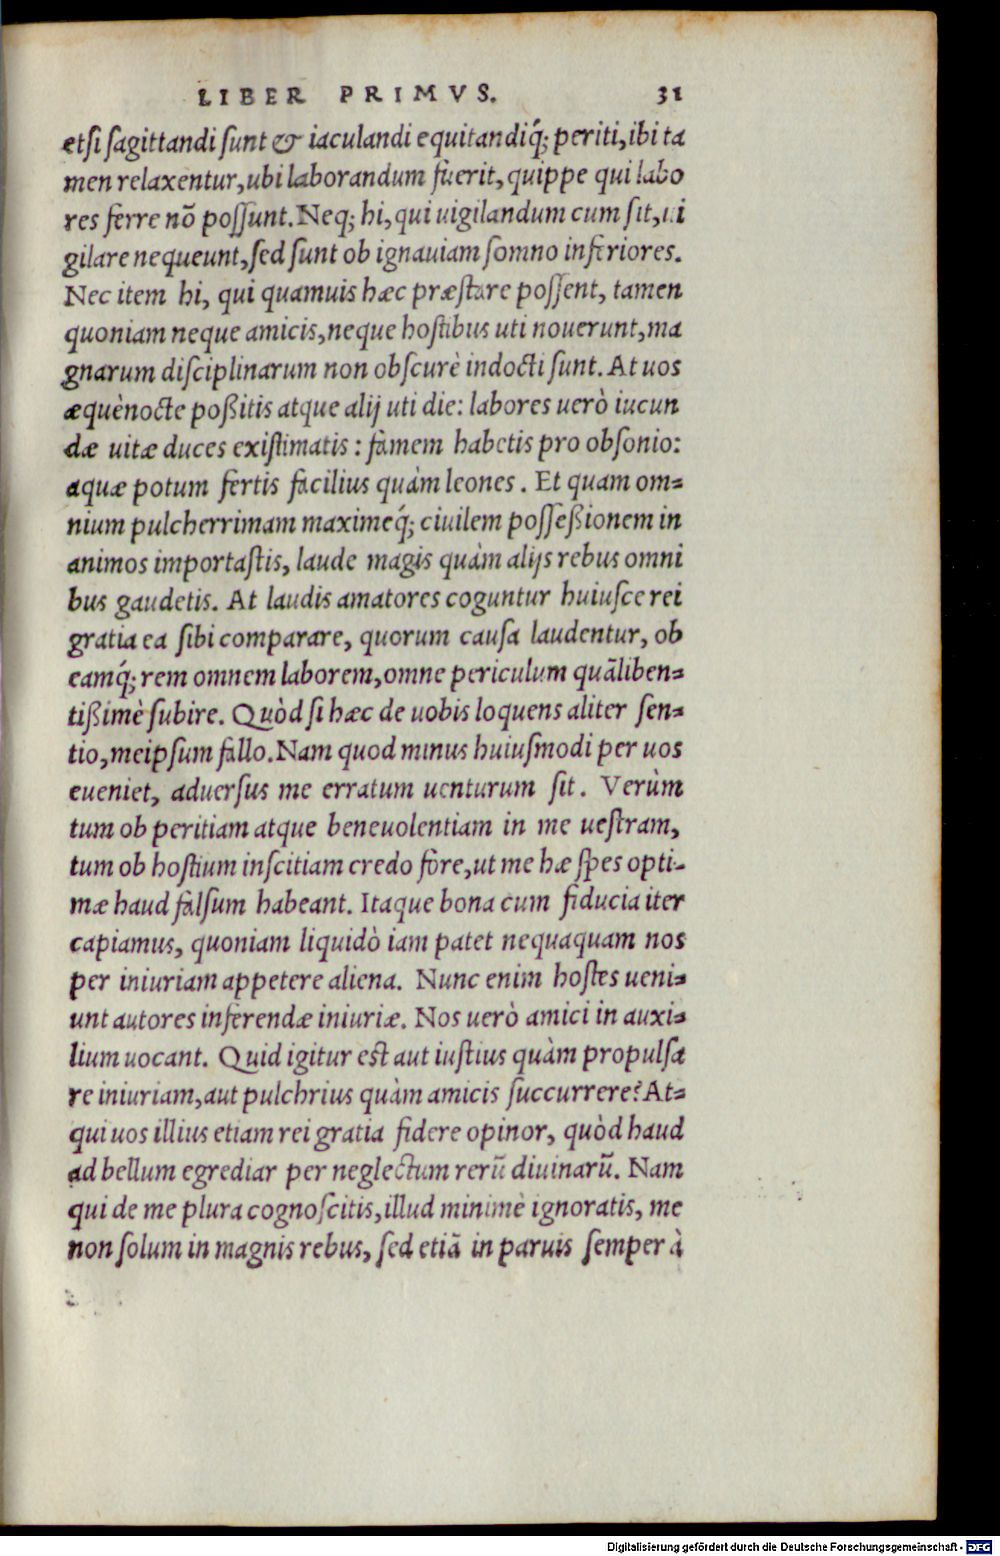 LIBER PRIMVS. 31
etsi sagittandi sunt & iaculandi equitandiq́; periti, ibi ta
men relaxentur, ubi laborandum fuerit, quippe qui labo
res ferre nõ possunt. Neq; hi, qui uigilandum cum sit, ui
gilare nequeunt, sed sunt ob ignauiam somno inferiores.
Nec item hi, qui quamuis hæc præstare possent, tamen
quoniam neque amicis, neque hostibus uti nouerunt, ma
gnarum disciplinarum non obscurè indocti sunt. At uos
æquè nocte poßitis atque alij uti die: labores uerò iucun
dæ uitæ duces existimatis: famem habetis pro obsonio:
aquæ potum fertis facilius quàm leones. Et quam om-
nium pulcherrimam maximeq́; ciuilem posseßionem in
animos importastis, laude magis quàm alijs rebus omni
bus gaudetis. At laudis amatores coguntur huiusce rei
gratia ea sibi comparare, quorum causa laudentur, ob
eamq́; rem omnem laborem, omne periculum quãliben-
tißimè subire. Quòd si hæc de uobis loquens aliter sen-
tio, meipsum fallo. Nam quod minus huiusmodi per uos
eueniet, aduersus me erratum uenturum sit. Verùm
tum ob peritiam atque beneuolentiam in me uestram,
tum ob hostium inscitiam credo fore, ut me hæ spes opti-
mæ haud falsum habeant. Itaque bona cum fiducia iter
capiamus, quoniam liquidò iam patet nequaquam nos
per iniuriam appetere aliena. Nunc enim hostes ueni-
unt autores inferendæ iniuriæ. Nos uerò amici in auxi-
lium uocant. Quid igitur est aut iustius quàm propulsa
re iniuriam, aut pulchrius quàm amicis succurrere? At-
qui uos illius etiam rei gratia fidere opinor, quòd haud
ad bellum egrediar per neglectum rerũ diuinarũ. Nam
qui de me plura cognoscitis, illud minimè ignoratis, me
non solum in magnis rebus, sed etiã in paruis semper à
Digitalisierung gefördert durch die Deutsche Forschungsgemeinschaft - DFG